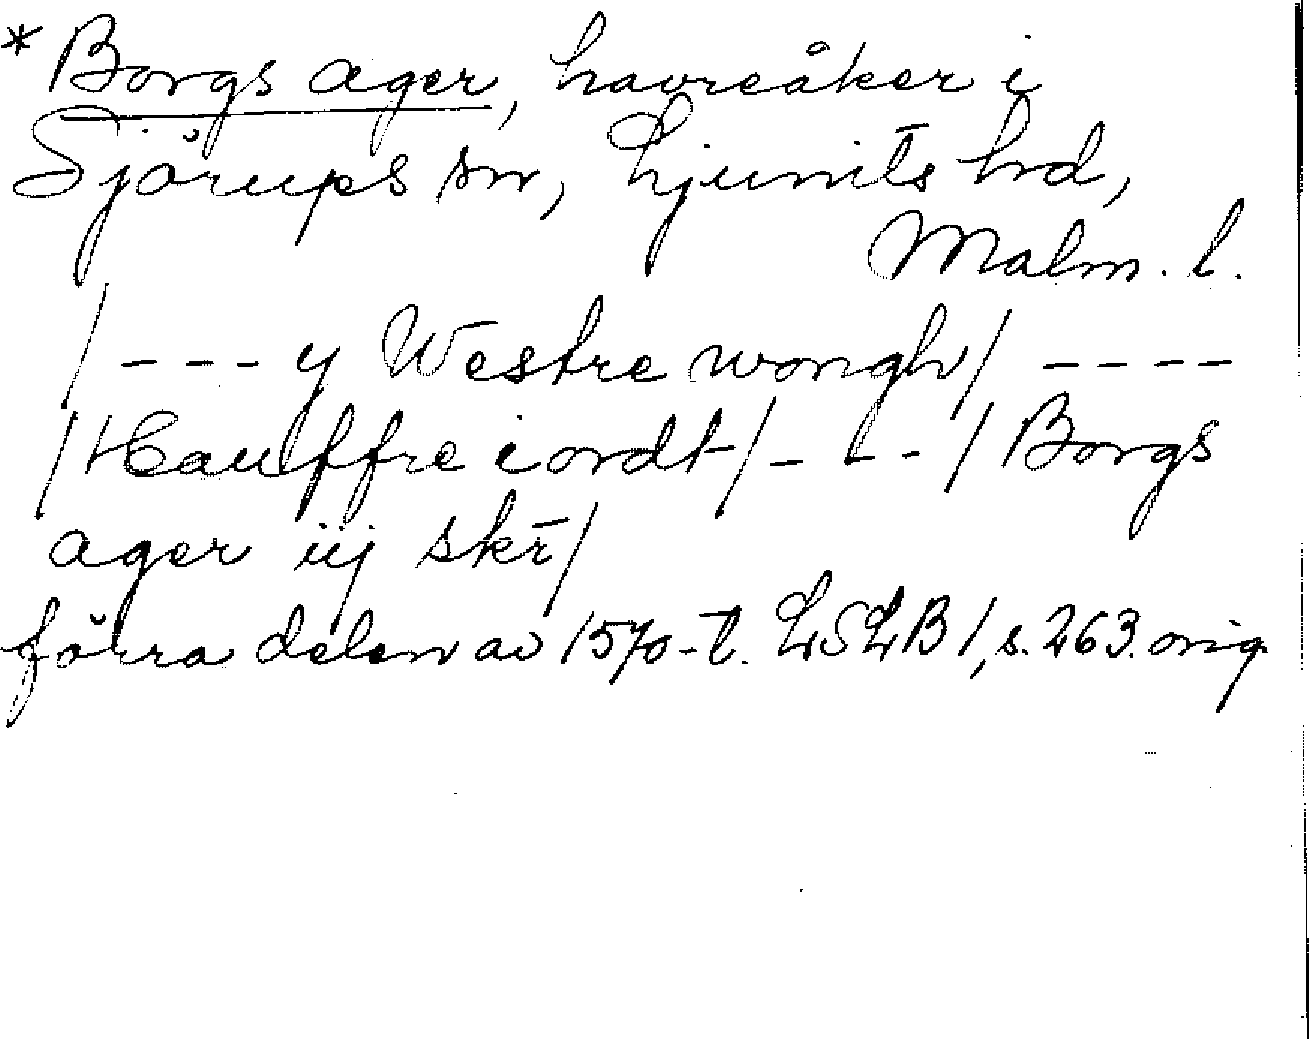 * Borgs ager, havreåker i
Sjörups sn, Ljunits hd,
Malm. l.
/ - - - y Westre wongh / - - - -
/ Hauffre iordt / - - - / Borgs
ager iij skr̄ /
förra delen av 1570-t. LSLB 1, s. 263. orig.